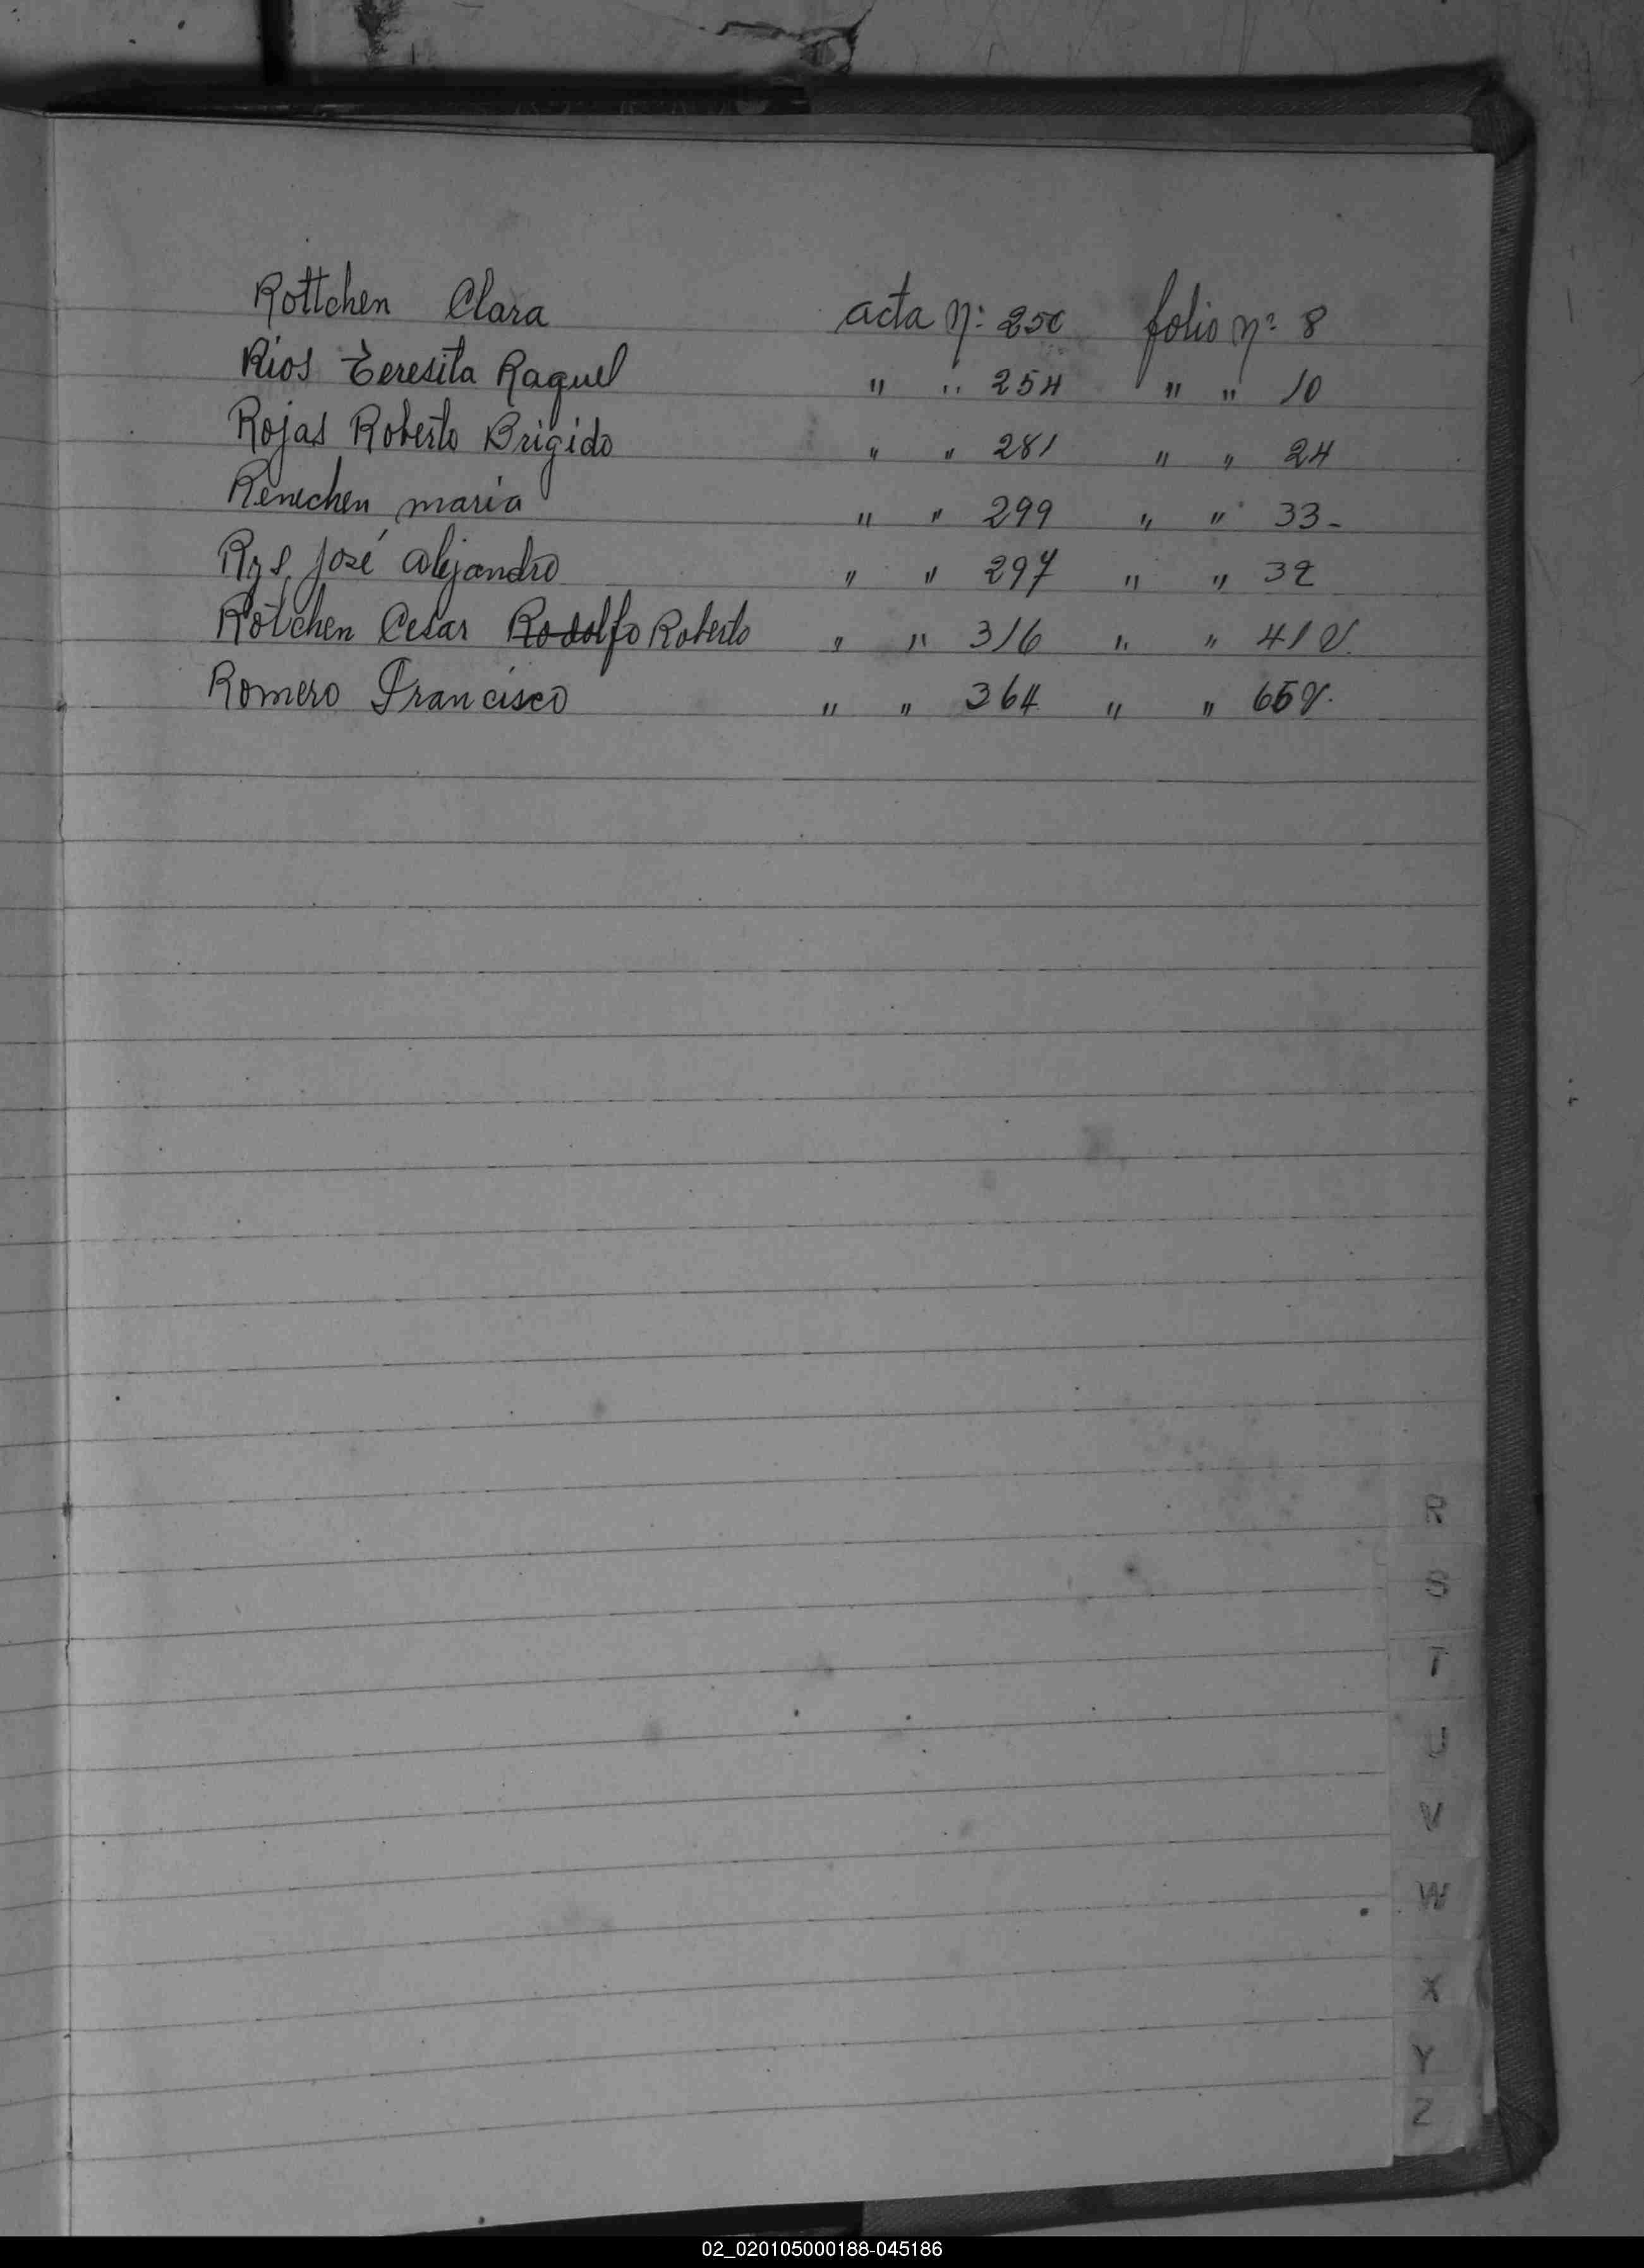 Rottchen Clara acta nº 250 folio nº 8
Rios Teresita Raquel " " 254 " " 10
Rojas Roberto Brigido " " 281 " " 24
Renechen maria " " 299 " " 33-
José Alejandro " " 297 " " 32
Rotchen Cesar Rodolfo Roberto " " 316 " " 41 V.
Romero Francisco " " 364 " " 65 V.
R
S
T
U
V
W
X
Y
Z
02_020105000188-045186